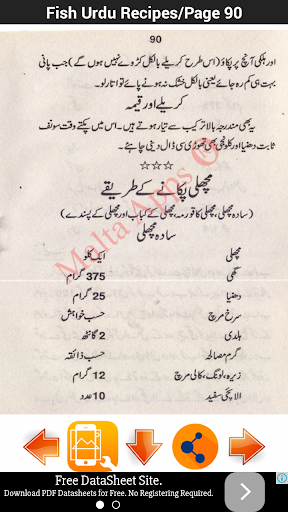 Fish Urdu Recipes/Page 90
90
اور ہلکی آنچ پر پکاؤ (اس طرح کریلے بالکل کڑوے نہیں ہوں گے) جب پانی
بہت ہی کم رہ جائے یعنی بالکل خشک نہ ہونے پائے تو اتار لو۔
کریلے اور قیمہ
یہ بھی مندرجہ بالا ترکیب سے تیار ہوتے ہیں۔ اس میں پکتے وقت سونف
ثابت دھنیا اور کلونجی بھی تھوڑی سی ڈال دینی چاہئے۔
☆☆☆
مچھلی پکانے کے طریقے
(سادہ مچھلی، مچھلی کا قورمہ، مچھلی کے کباب اور مچھلی کے پسندے)
سادہ مچھلی
مچھلی ایک کلو
گھی 375 گرام
دھنیا 25 گرام
سرخ مرچ حسب خواہش
ہلدی 2 گانٹھ
گرم مصالحہ حسب ذائقہ
زیرہ، لونگ، کالی مرچ 12 گرام
الائچی سفید 10 عدد
Malta Apps
Free DataSheet Site.
Download PDF Datasheets for Free. No Registering Required.